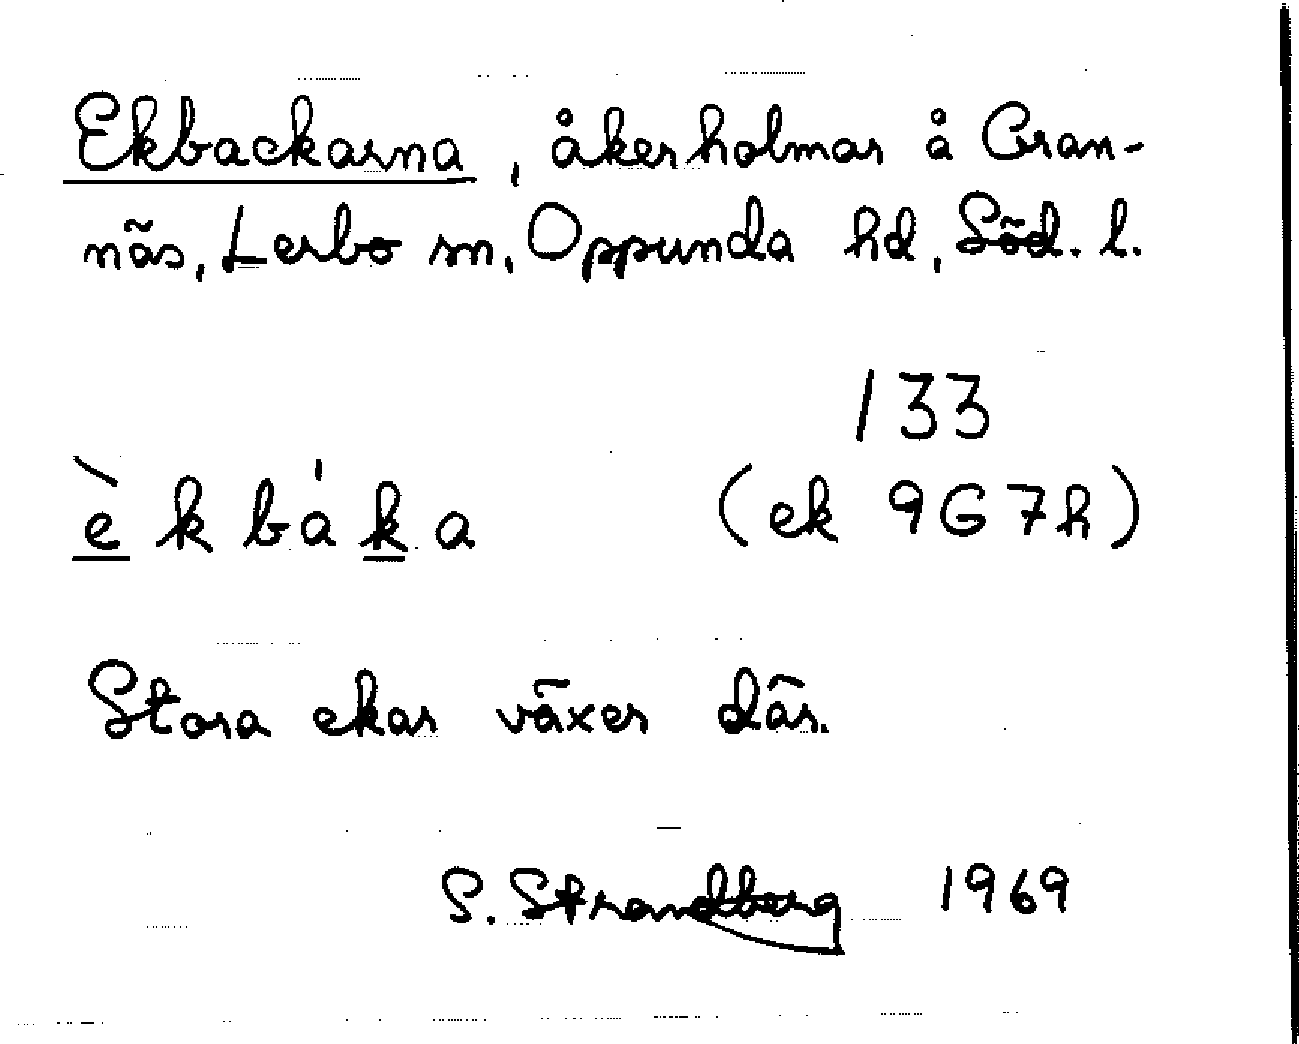 Ekbackarna, åkerholmar å Gran-
näs, Lerbo sn, Oppunda hd, Söd. l.
133
èkbáka (ek 9G7h)
Stora ekar växer där.
S. Strandberg 1969